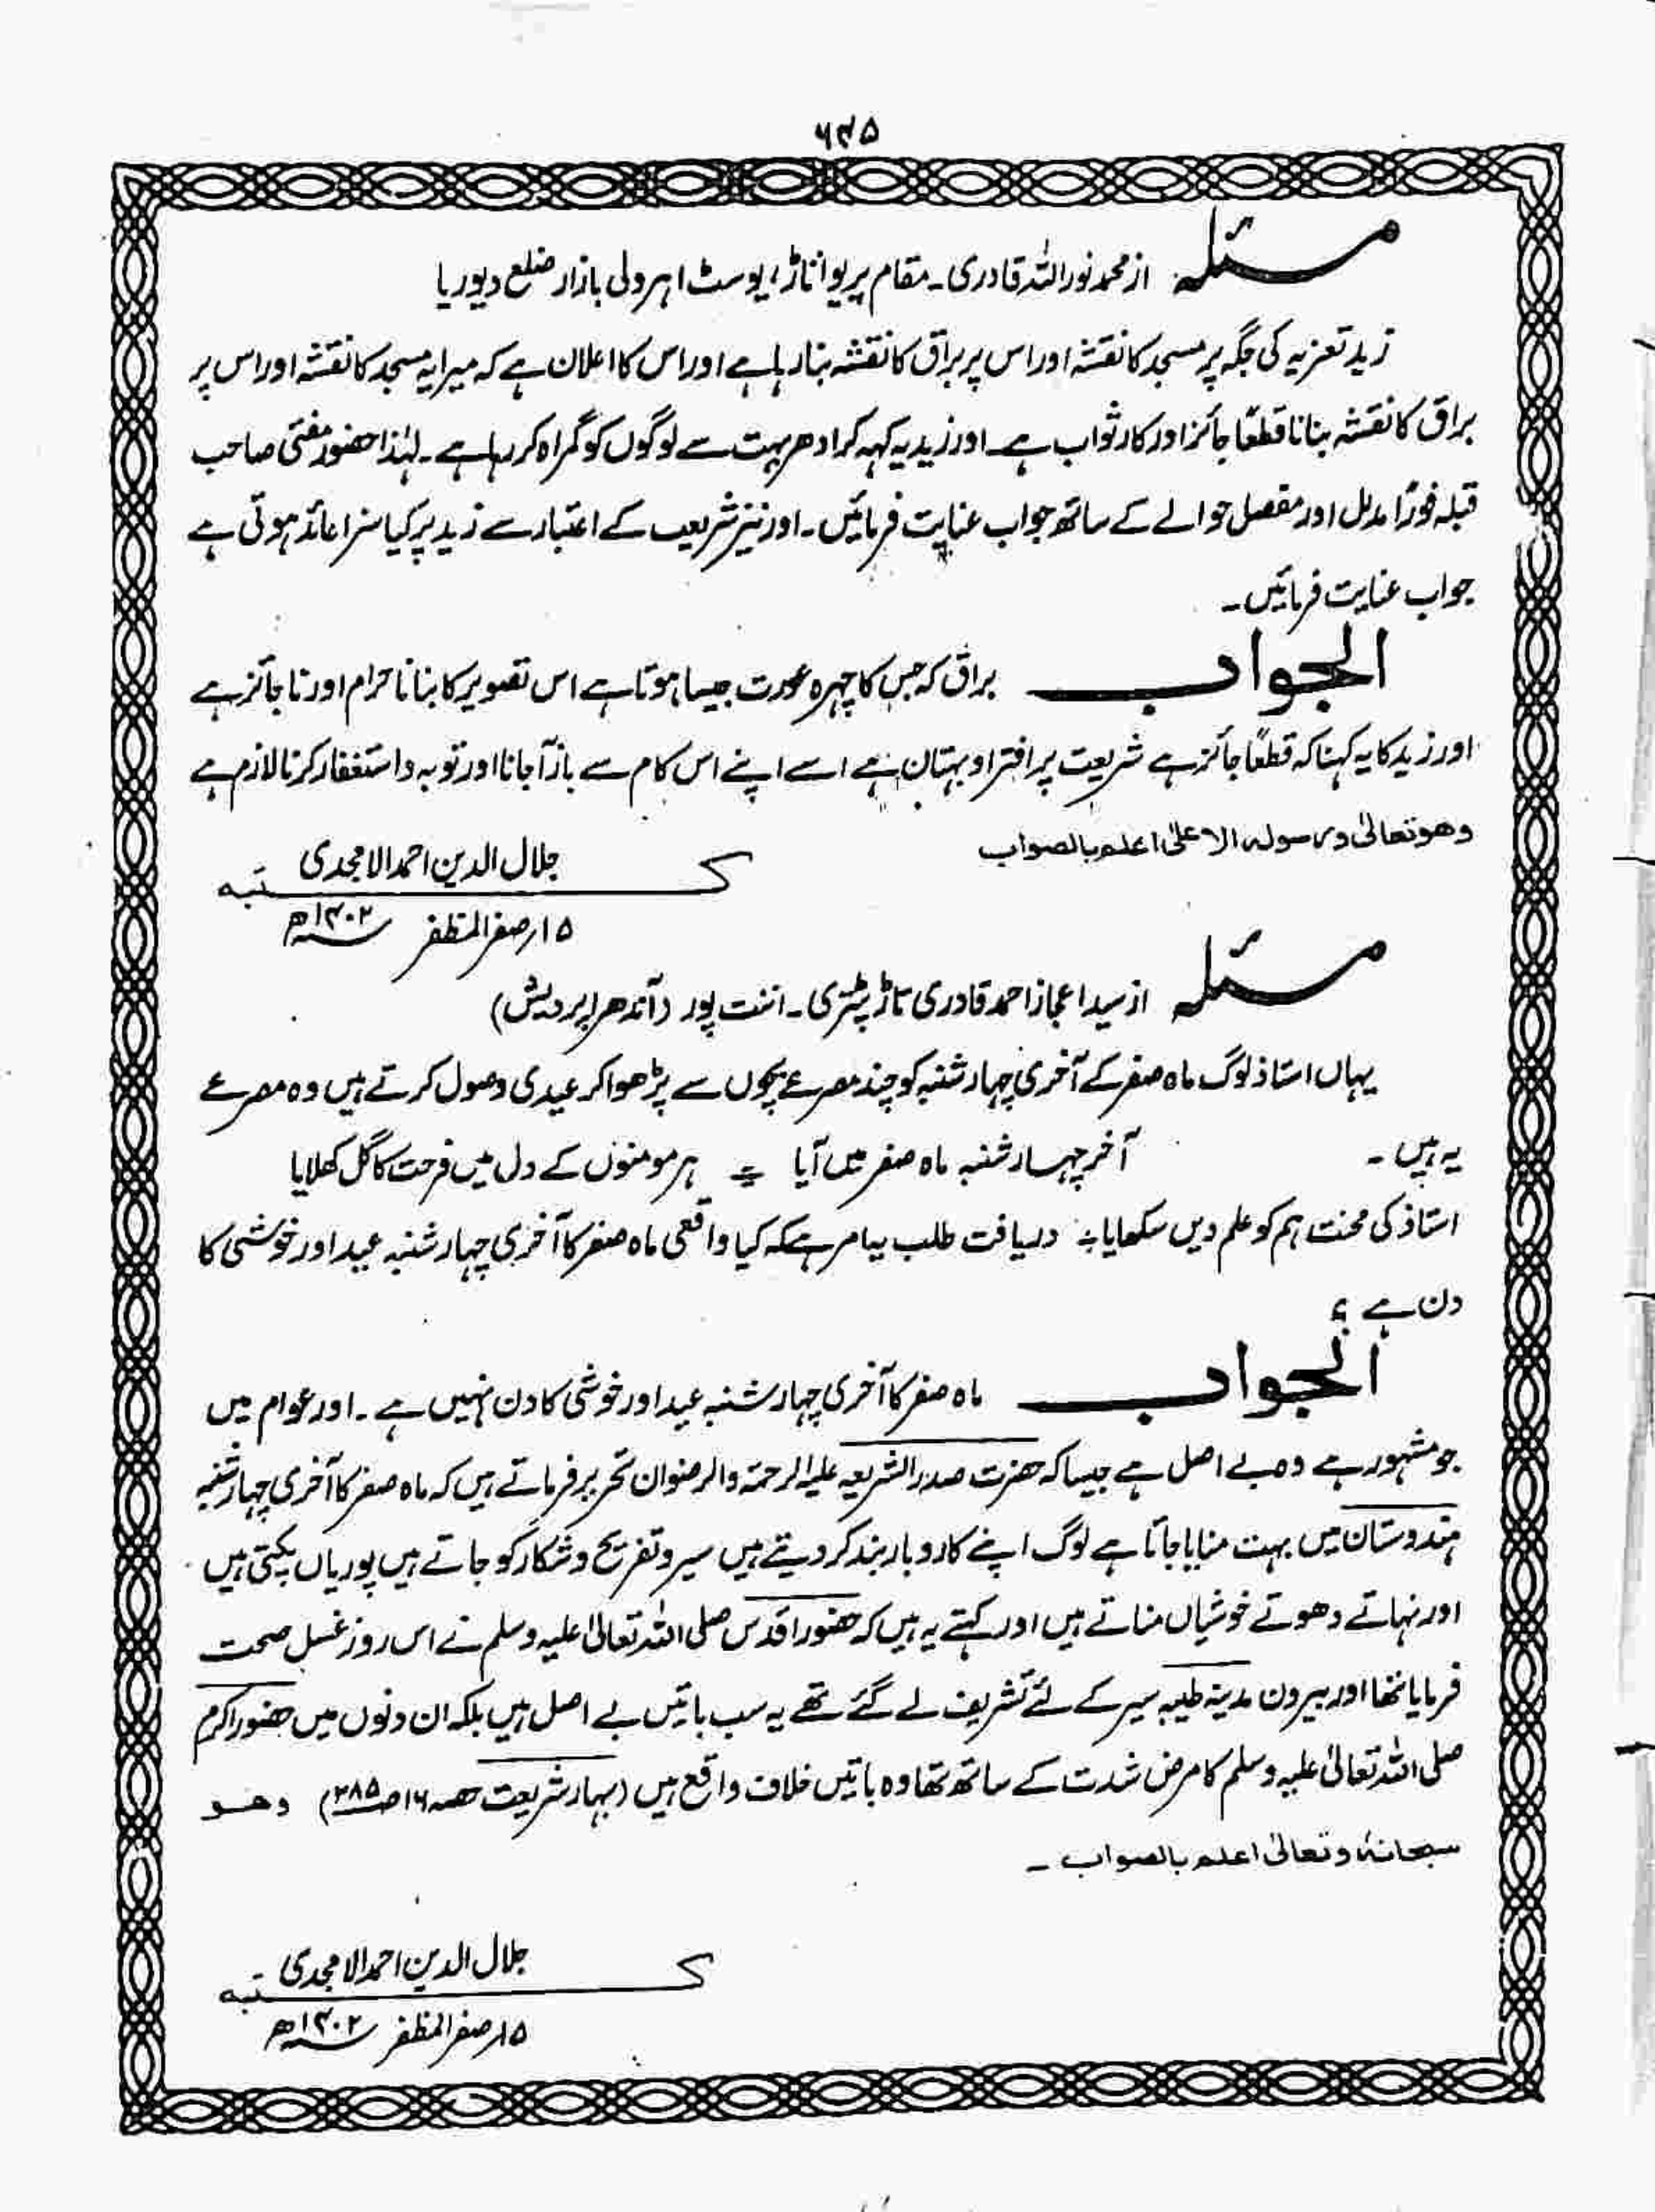 ۶۴۵
مسئلہ از محمد نور اللہ قادری۔ مقام پریوا ناڑ، پوسٹ اہرولی بازار ضلع دیوریا
زید تعزیہ کی جگہ پر مسجد کا نقشہ اور اس پر براق کا نقشہ بنا رہا ہے اور اس کا اعلان ہے کہ میرا یہ مسجد کا نقشہ اور اس پر
براق کا نقشہ بنانا قطعًا جائز اور کار ثواب ہے۔ اور زید یہ کہہ کر ادھر بہت سے لوگوں کو گمراہ کر رہا ہے۔ لہٰذا حضور مفتی صاحب
قبلہ فورًا مدلل اور مفصل حوالے کے ساتھ جواب عنایت فرمائیں۔ اور نیز شریعت کے اعتبار سے زید پر کیا سزا عائد ہوتی ہے
جواب عنایت فرمائیں۔
الجواب براق کہ جس کا چہرہ عورت جیسا ہوتا ہے اس تصویر کا بنانا حرام اور ناجائز ہے
اور زید کا یہ کہنا کہ قطعًا جائز ہے شریعت پر افترا و بہتان ہے اسے اپنے اس کام سے باز آجانا اور توبہ و استغفار کرنا لازم ہے
وھو تعالیٰ ورسولہ الاعلیٰ اعلم بالصواب
کتبہ جلال الدین احمد الامجدی
۱۵؍ صفر المظفر ۱۴۰۲ھ
مسئلہ از سید اعجاز احمد قادری تاڑپتری۔ اننت پور (آندھرا پردیش)
یہاں استاذ لوگ ماہ صفر کے آخری چہار شنبہ کو چند مصرعے بچوں سے پڑھوا کر عیدی وصول کرتے ہیں وہ مصرعے
یہ ہیں۔ آخر چہار شنبہ ماہ صفر میں آیا ؎ ہر مومنوں کے دل میں فرحت کا گل کھلایا
استاذ کی محنت ہم کو علم دیں سکھایا؎ دریافت طلب یہ امر ہے کہ کیا واقعی ماہ صفر کا آخری چہار شنبہ عید اور خوشی کا
دن ہے؟
الجواب ماہ صفر کا آخری چہار شنبہ عید اور خوشی کا دن نہیں ہے۔ اور عوام میں
جو مشہور ہے وہ بے اصل ہے جیسا کہ حضرت صدر الشریعہ علیہ الرحمۃ والرضوان تحریر فرماتے ہیں کہ ماہ صفر کا آخری چہار شنبہ
ہندوستان میں بہت منایا جاتا ہے لوگ اپنے کاروبار بند کر دیتے ہیں سیر و تفریح و شکار کو جاتے ہیں پوریاں پکتی ہیں
اور نہاتے دھوتے خوشیاں مناتے ہیں اور کہتے یہ ہیں کہ حضور اقدس صلی اللہ تعالیٰ علیہ وسلم نے اس روز غسل صحت
فرمایا تھا اور بیرون مدینہ طیبہ سیر کے لئے تشریف لے گئے تھے یہ سب باتیں بے اصل ہیں بلکہ ان دنوں میں حضور اکرم
صلی اللہ تعالیٰ علیہ وسلم کا مرض شدت کے ساتھ تھا وہ باتیں خلاف واقع ہیں (بہار شریعت حصہ ۱۶ ص ۲۸۵) وھو
سبحانہٗ وتعالیٰ اعلم بالصواب۔
کتبہ جلال الدین احمد الامجدی
۱۵؍ صفر المظفر ۱۴۰۲ھ